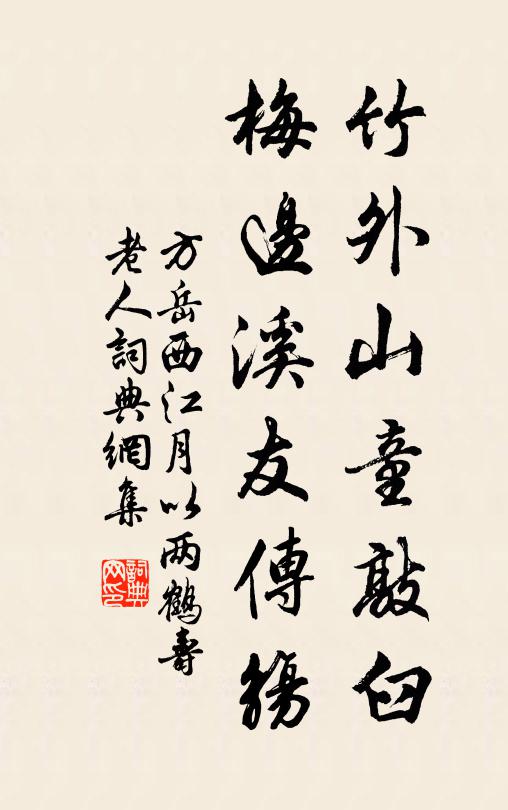 竹外山童敲臼
梅邊溪友傳觴
方岳西江月以两鶴壽
老人詞典網集
詞典
网印